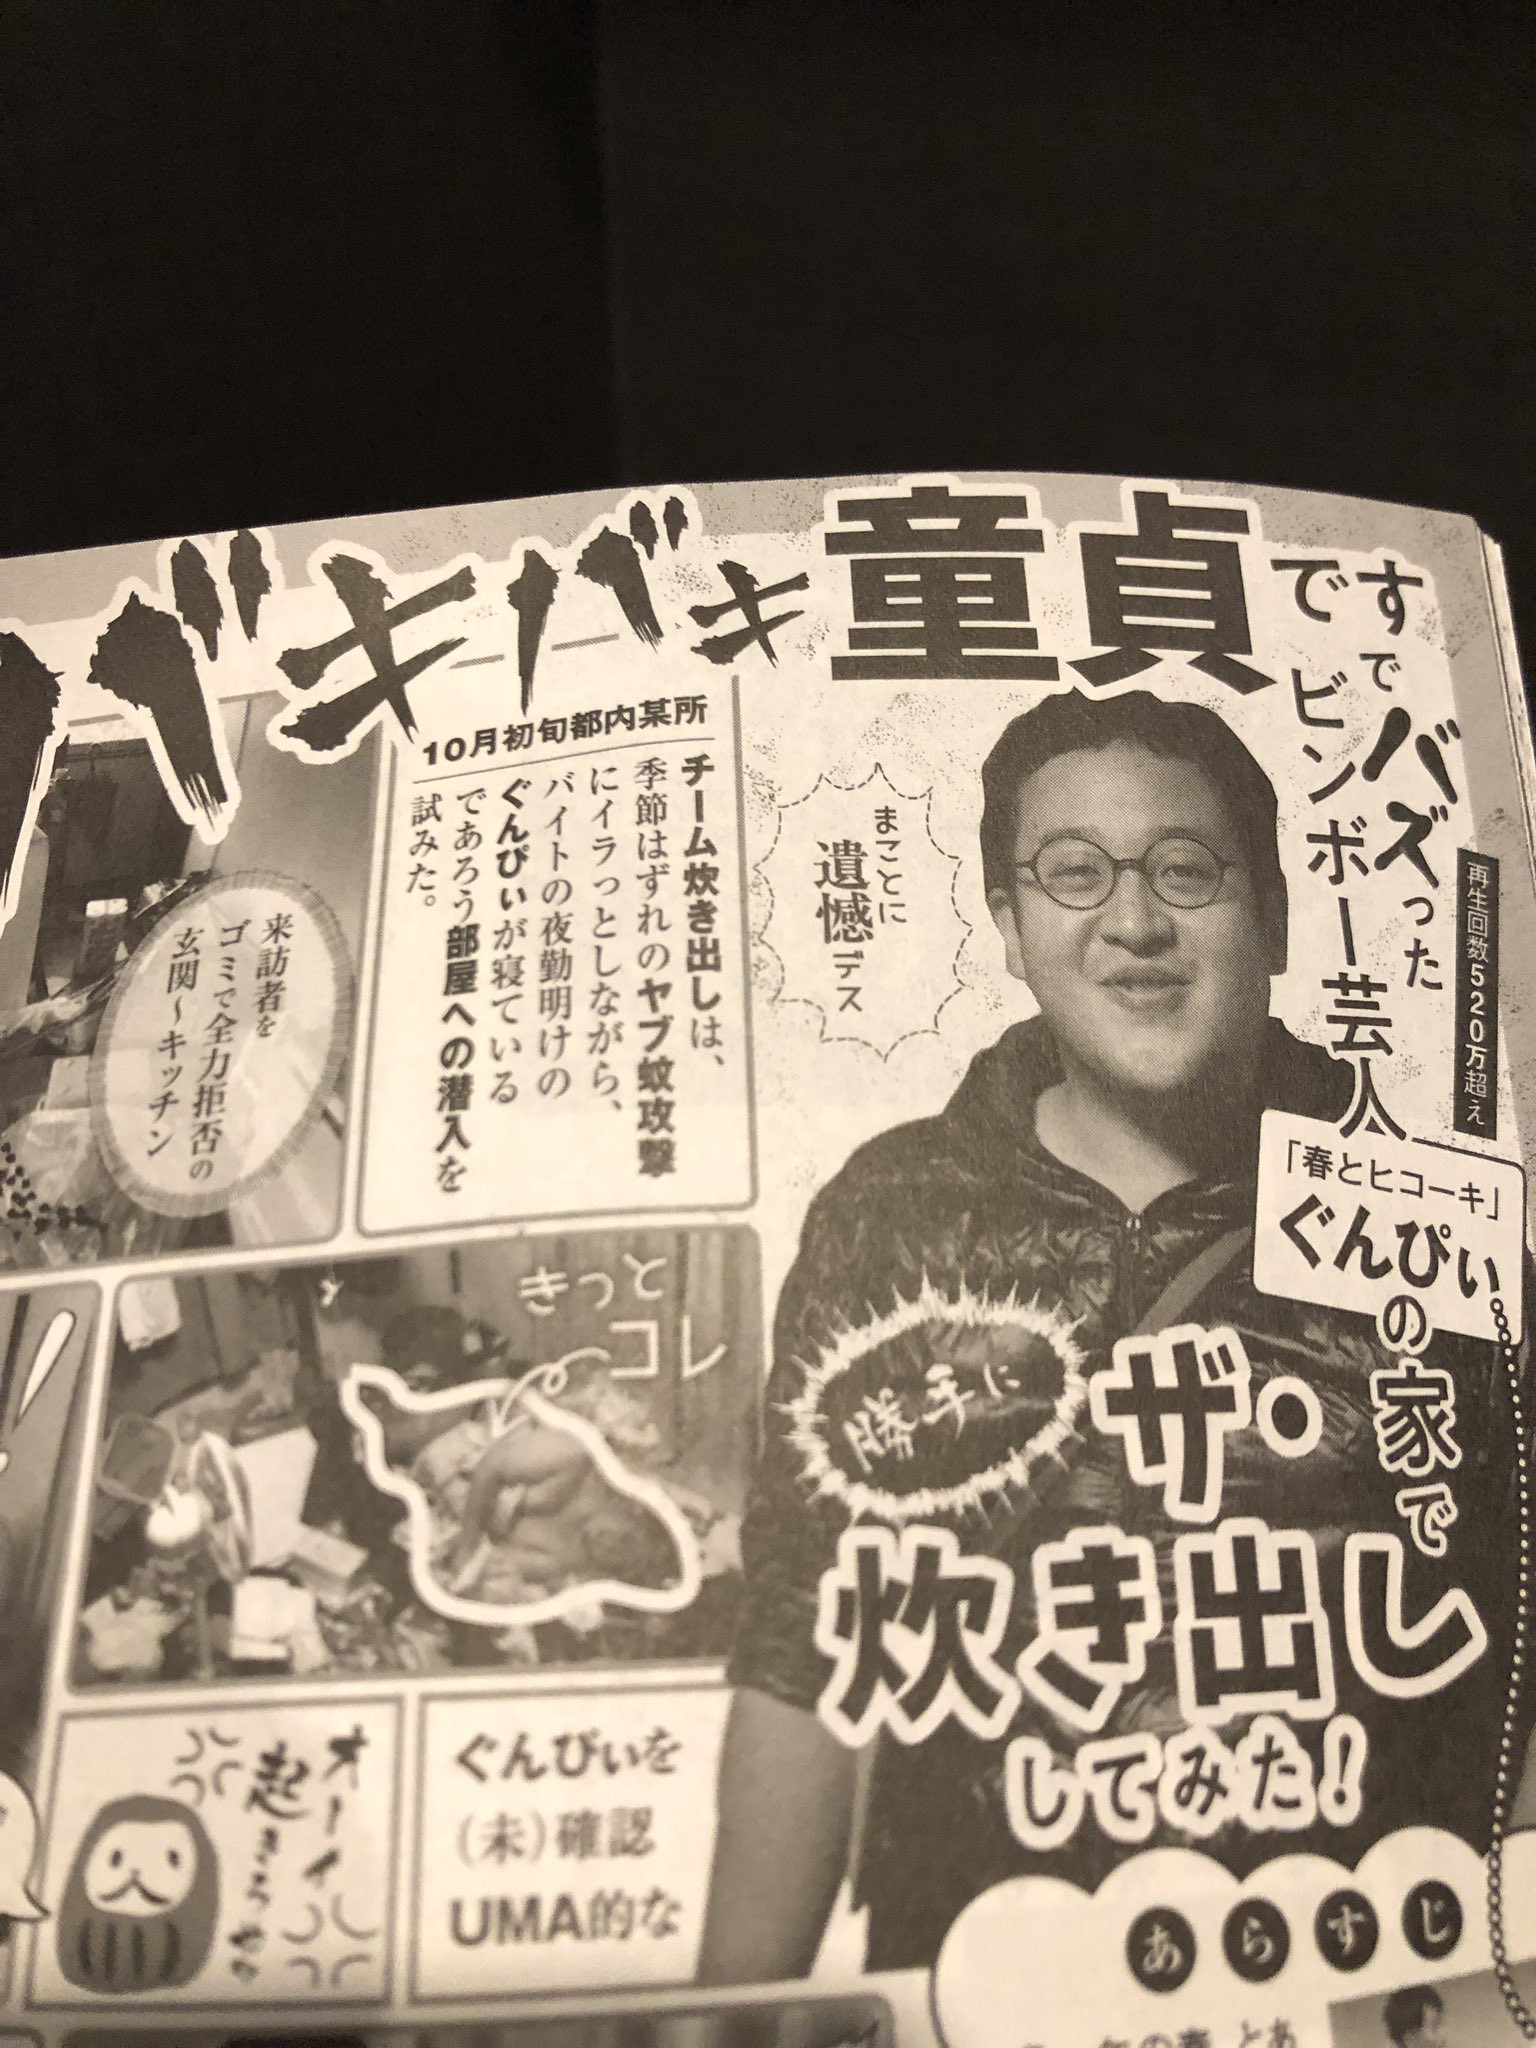 バキバキ童貞
ですでバズった
再生回数520万超え
ビンボー芸人
「春とヒコーキ」
ぐんぴぃ。
の家で
勝手に
ザ・
炊き出し
してみた!
まことに
遺憾デス
10月初旬都内某所
チーム炊き出しは、
季節はずれのヤブ蚊攻撃
にイラっとしながら、
バイトの夜勤明けの
ぐんぴぃが寝ている
であろう部屋への潜入を
試みた。
来訪者を
ゴミで全力拒否の
玄関〜キッチン
きっと
コレ
ぐんぴぃを
(未)確認
UMA的な
オーイ
あらすじ